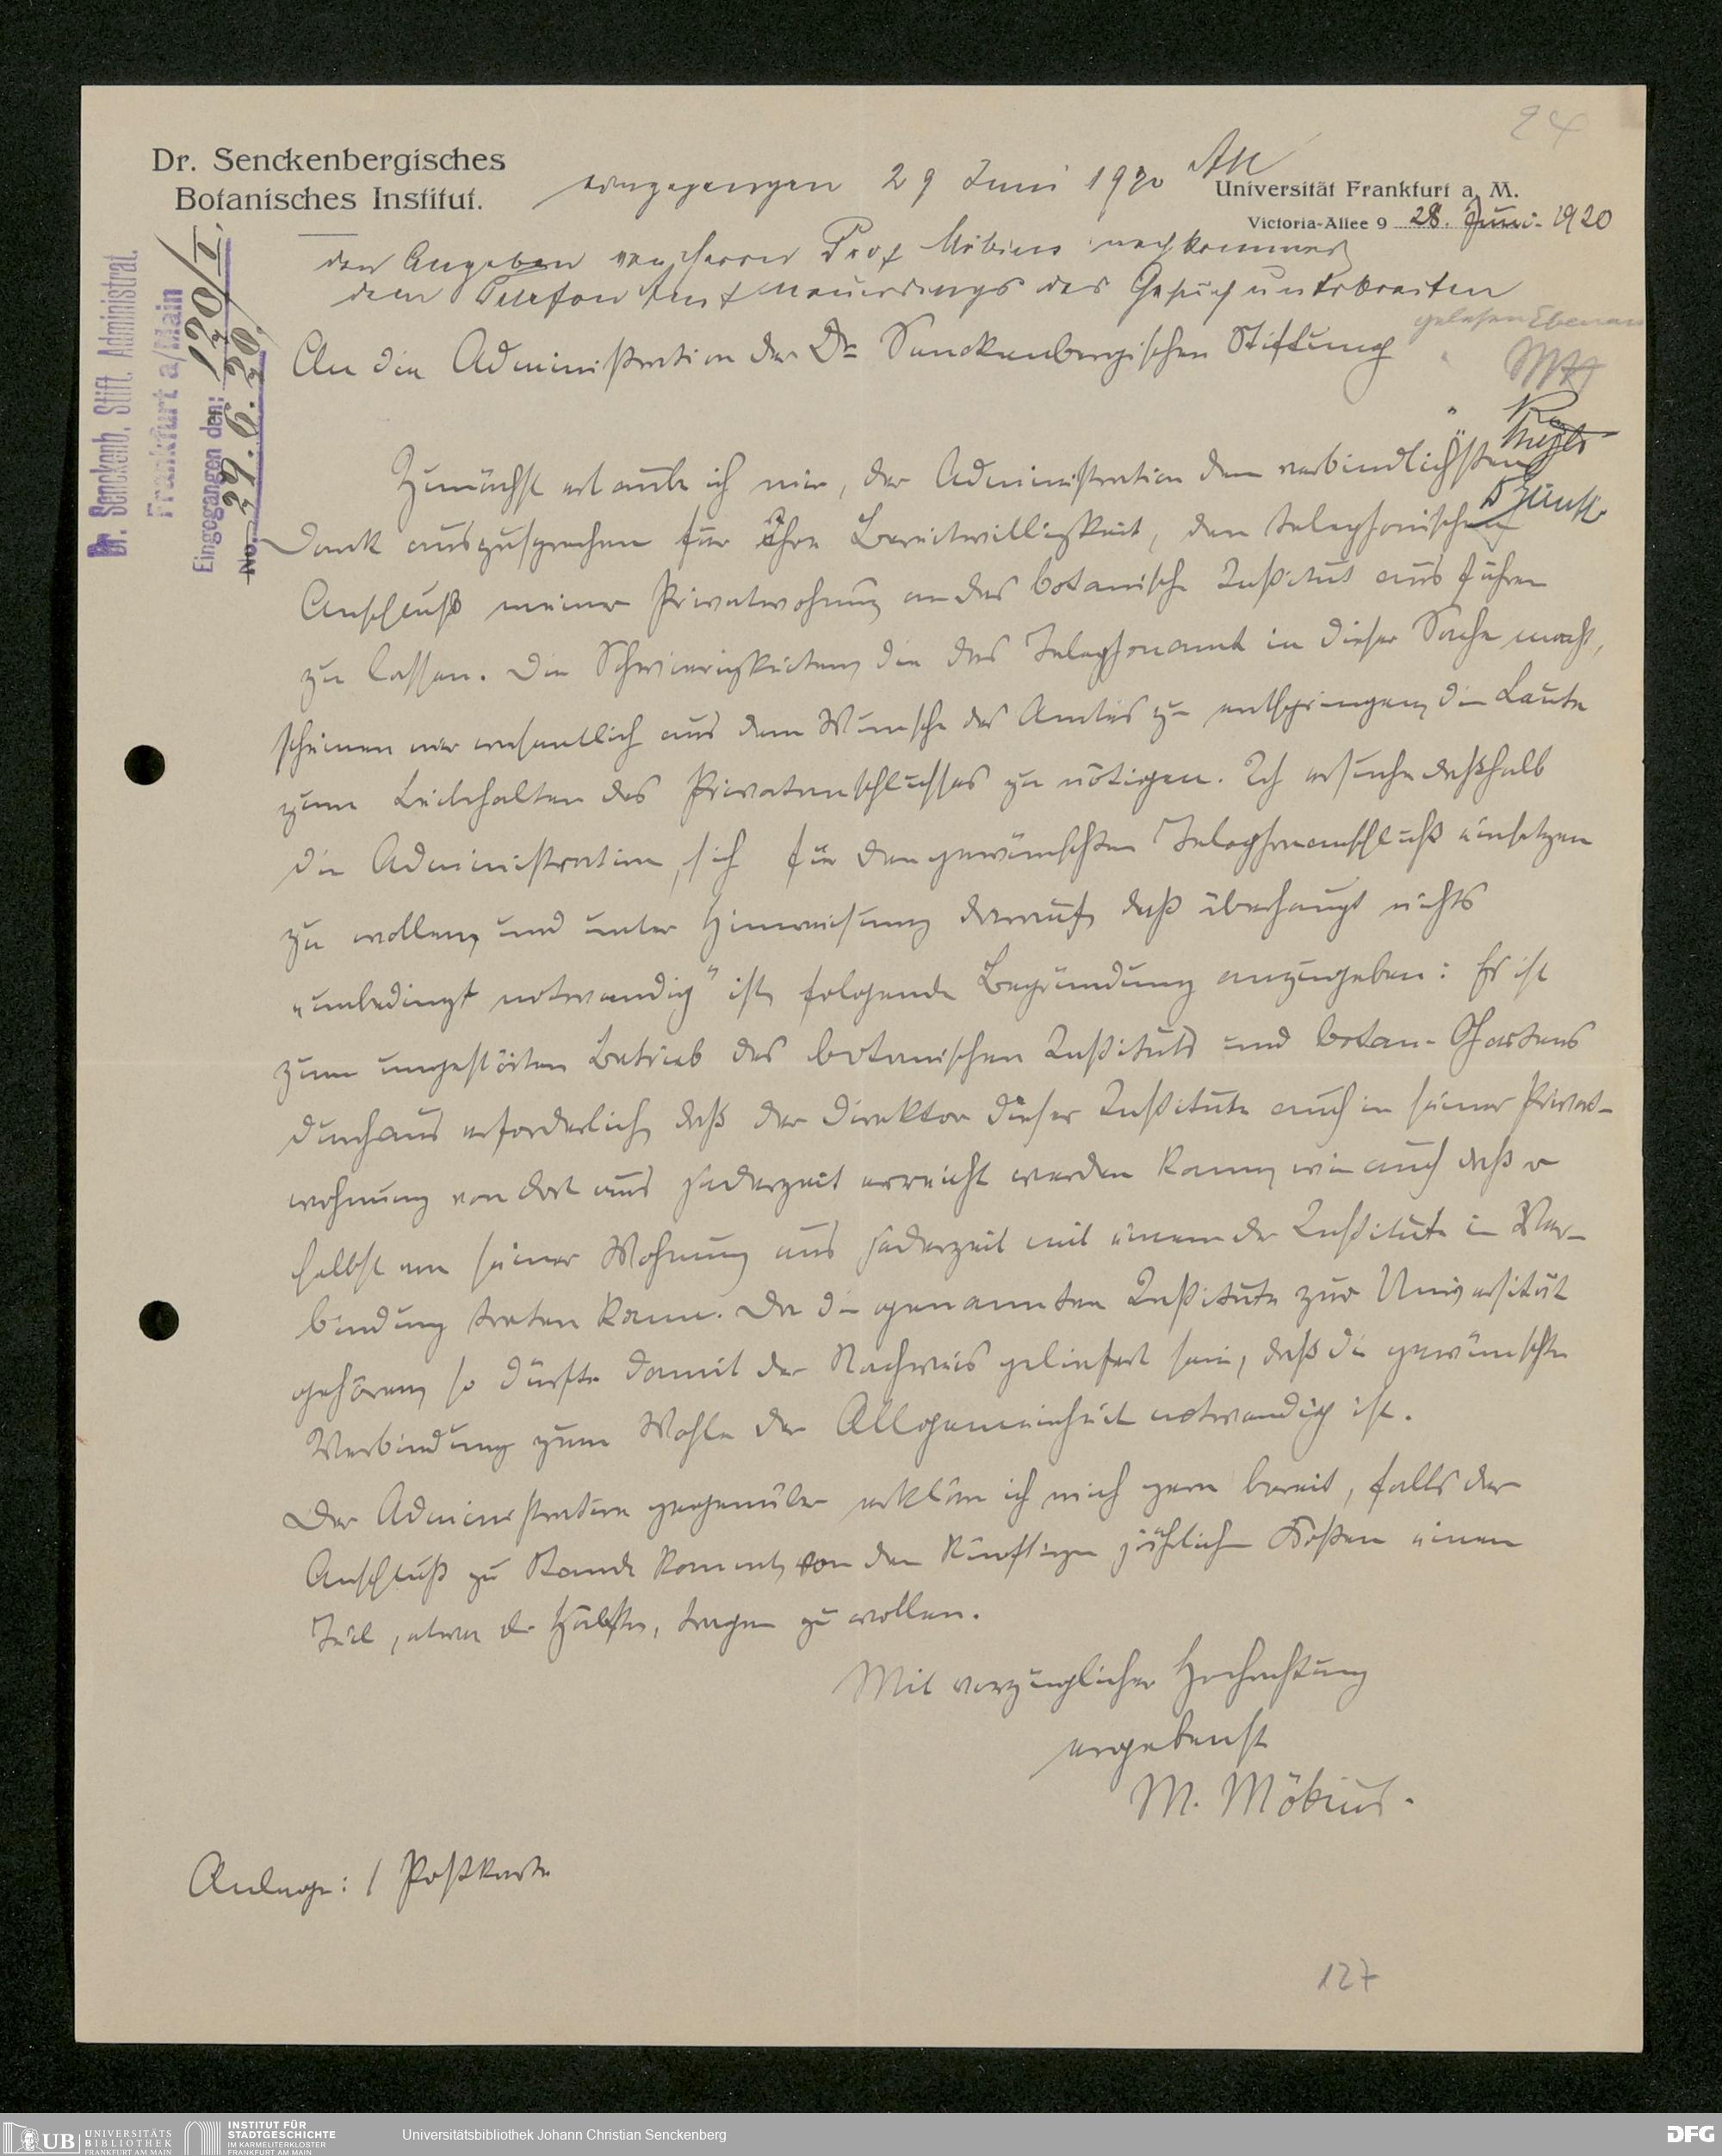 24
Dr. Senckenbergisches
Botanisches Institut.
Universität Frankfurt a. M.
Victoria-Allee 9 28. Juni 1920
eingegangen 29 Juni 1920
den Angaben von Herrn Prof Möbius nachkommend
dem Telefon Amt neuerdings das Gesuch unterbreiten
gelesen
Dr. Senckenb. Stift. Administrat.
Frankfurt a/Main
Eingegangen den: 29.6.20
No. 120/I.
An die Administration der Dr. Senckenbergischen Stiftung
Zunächst erlaube ich mir, der Administration den verbindlichsten
Dank auszusprechen für Ihre Bereitwilligkeit, den telephonischen
Anschluß meiner Privatwohnung an das botanische Institut ausführen
zu lassen. Die Schwierigkeiten, die das Telephonamt in dieser Sache macht,
scheinen mir wesentlich aus dem Wunsche des Amtes zu entspringen, die Leute
zum Beibehalten des Privatanschlusses zu nötigen. Ich ersuche deßhalb
die Administration, sich für den gewünschten Telephonanschluß einsetzen
zu wollen, und unter Hinweisung darauf, daß überhaupt nichts
„unbedingt notwendig" ist, folgende Begründung anzugeben: Es ist
zum ungestörten Betrieb des botanischen Instituts und botan. Gartens
durchaus erforderlich, daß der Direktor dieser Institute auch in seiner Privat-
wohnung von dort aus jederzeit erreicht werden kann, wie auch daß er
selbst von seiner Wohnung aus jederzeit mit einem der Institute in Ver-
bindung treten kann. Da die genannten Institute zur Universität
gehören, so dürfte damit der Nachweis geliefert sein, daß die gewünschte
Verbindung zum Wohle der Allgemeinheit notwendig ist.
Der Administration gegenüber erkläre ich mich gern bereit, falls der
Anschluß zu Stande kommt, von den künftigen jährlichen Kosten einen
Teil, etwa die Hälfte, tragen zu wollen.
Mit vorzüglicher Hochachtung
ergebenst
M. Möbius.
Anlage: 1 Postkarte
127
UB UNIVERSITÄTS
BIBLIOTHEK
FRANKFURT AM MAIN
INSTITUT FÜR
STADTGESCHICHTE
IM KARMELITERKLOSTER
FRANKFURT AM MAIN
Universitätsbibliothek Johann Christian Senckenberg
DFG